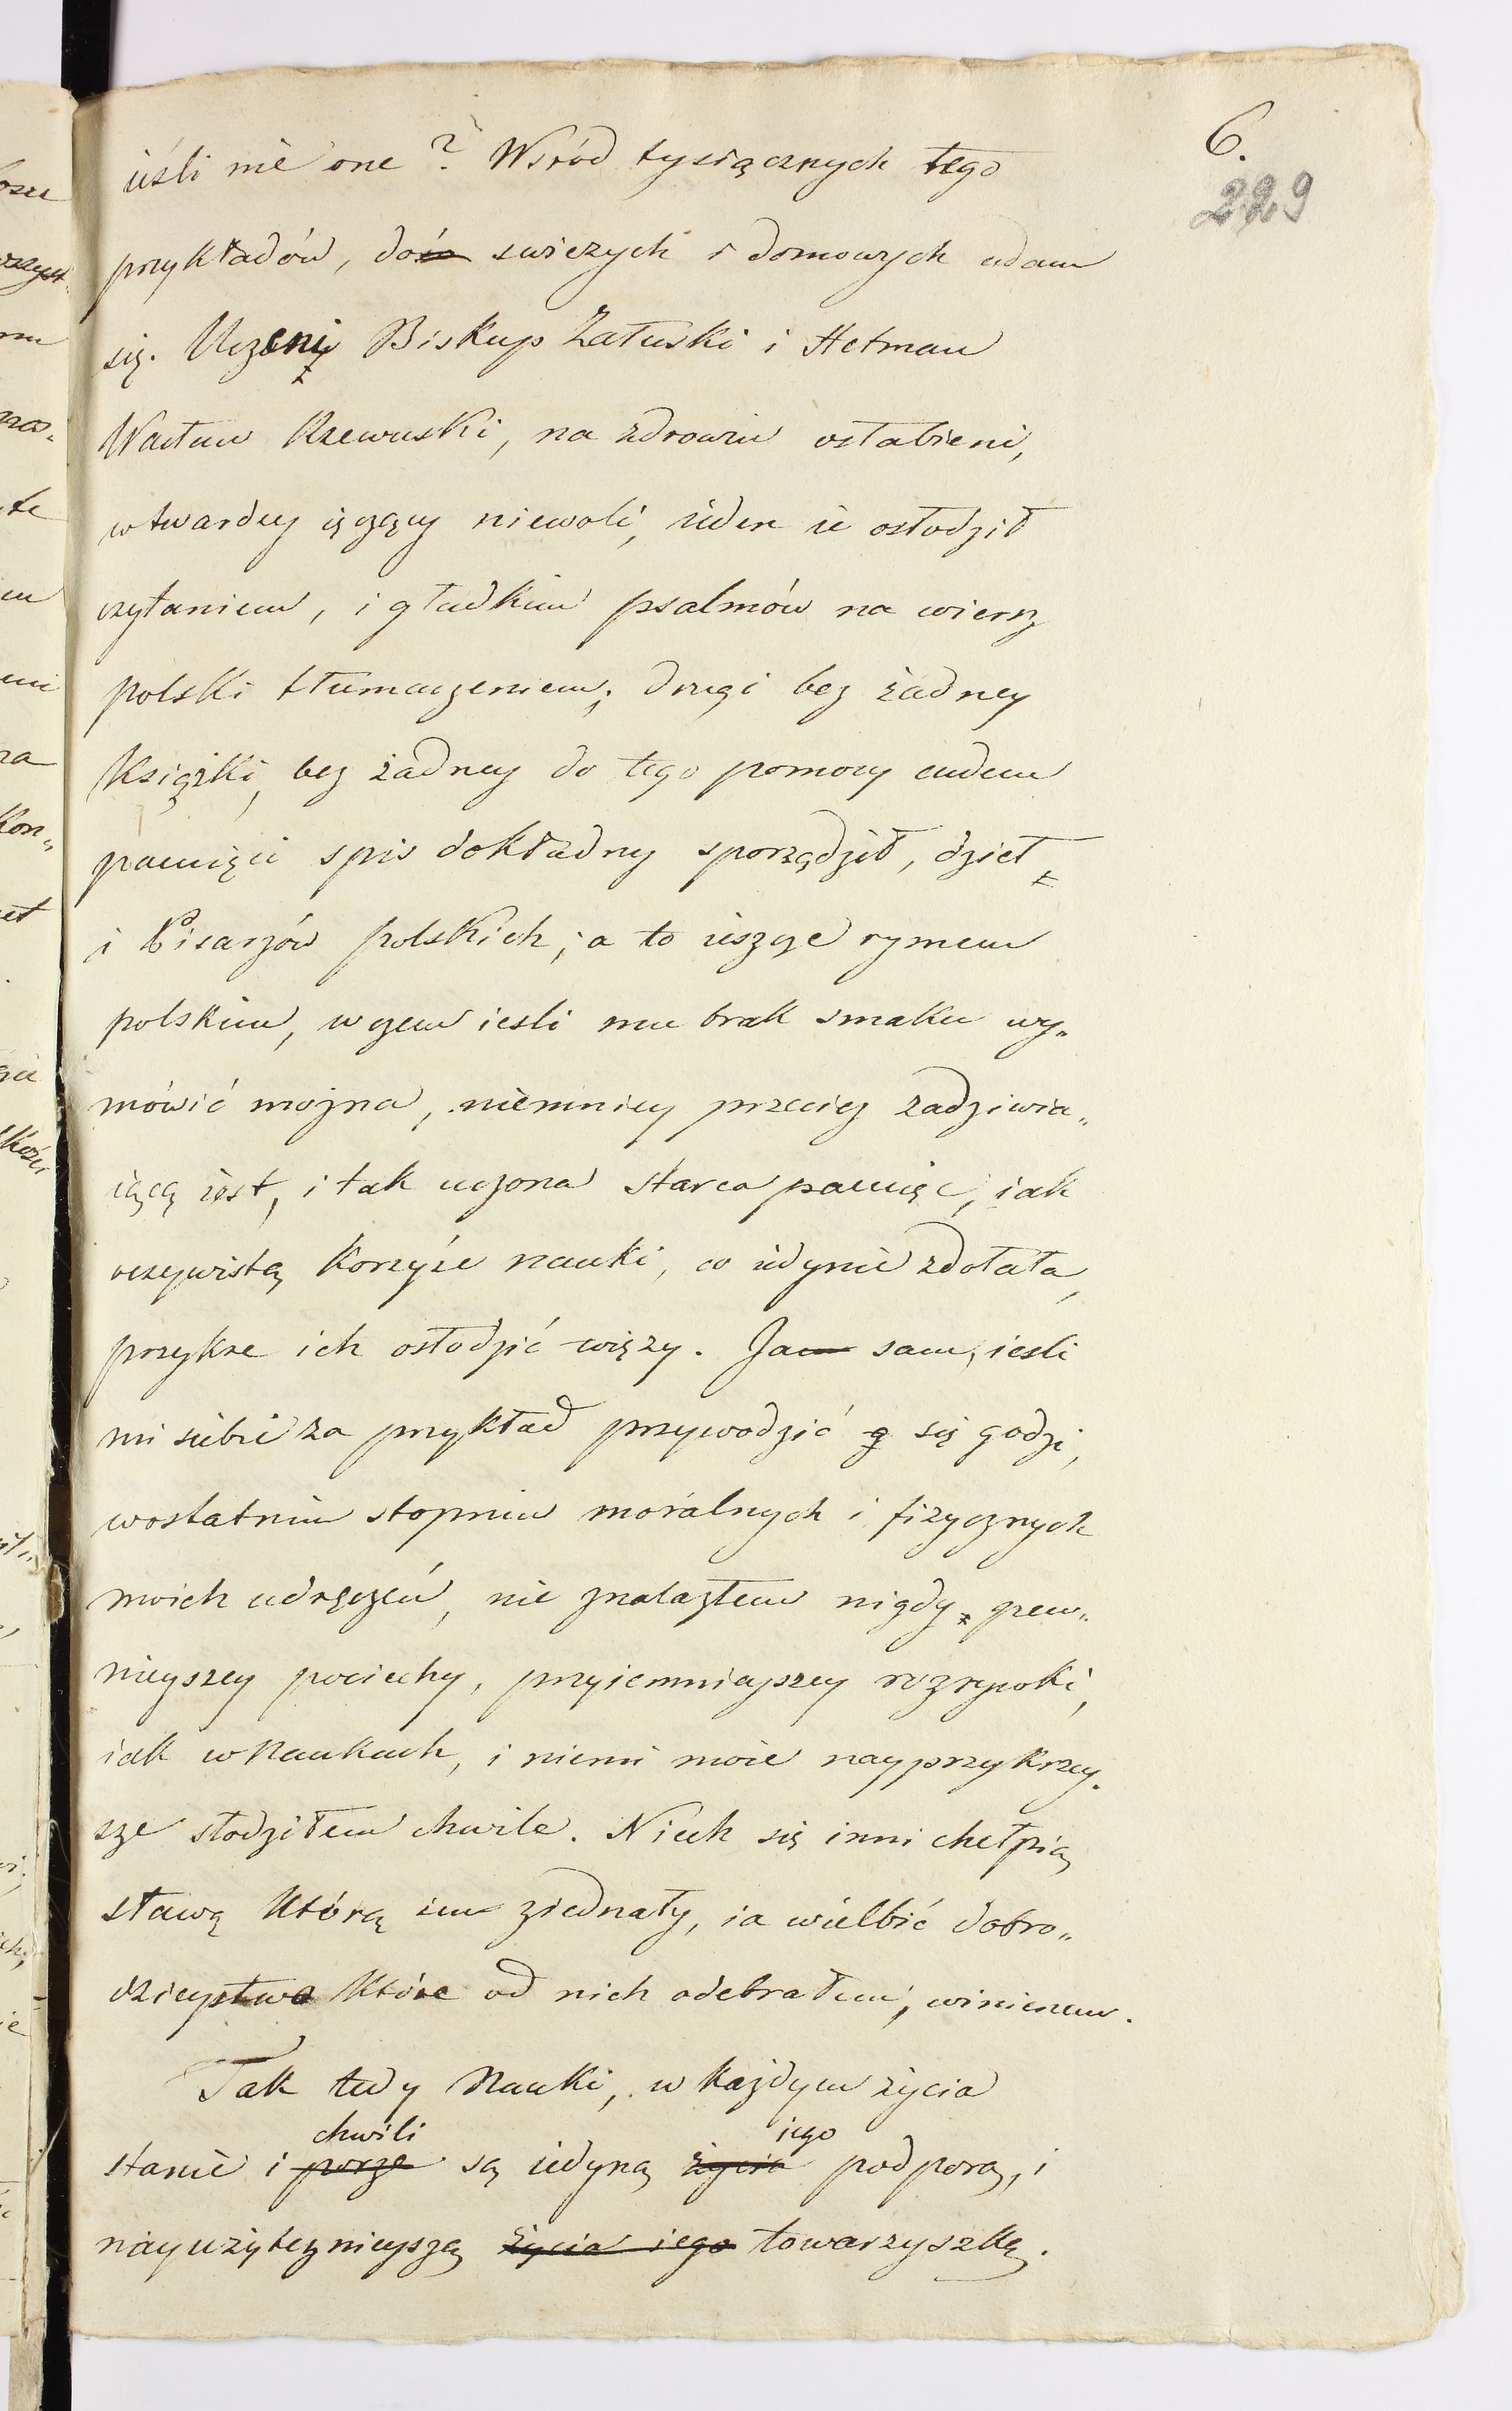 6.
229
ieśli nie one? Wsród tysiącznych tego
przykładów, do swieżych i domowych udam
się. Uczeni Biskup Załuski i Hetman
Wacław Rzewuski, na zdrowiu osłabieni,
w twardey ięczący niewoli, ieden ie osłodził
czytaniem, i gładkim psalmów na wiersz
polski tłumaczeniem; drugi bez żadney
Książki, bez żadney do tego pomocy cudem
pamięci spis dokładny sporządził, dzieł
i Pisarzów polskich; a to ieszcze rymem
polskim, w czem iesli mu brak smaku wy„
mówić można, niemniey przecież zadziwia„
iącą iest, i tak uczona starca pamięć, iak
oczywistą korzyśc nauki, co iedynie zdołała,
przykre ich osłodzić więzy. Ja sam, iesli
mi siebie za przykład przywodzić g się godzi,
w ostatnim stopniu moralnych i fizycznych
moich udręczeń, nie znalazłem nigdy pew„
nieyszey pociechy, przyiemnieyszey rozrywki,
iak w Naukach, i niemi moie nayprzykrzey„
sze słodziłem chwile. Niech się inni chełpią
sławą którą im ziednały, ia wielbić dobro„
dzieystwa które od nich odebrałem, winienem.
Tak tedy Nauki, w każdym życia
chwili iego
stanie i porze są iedyną życia podporą, i
nayużytecznieyszą życia iego towarzyszką.